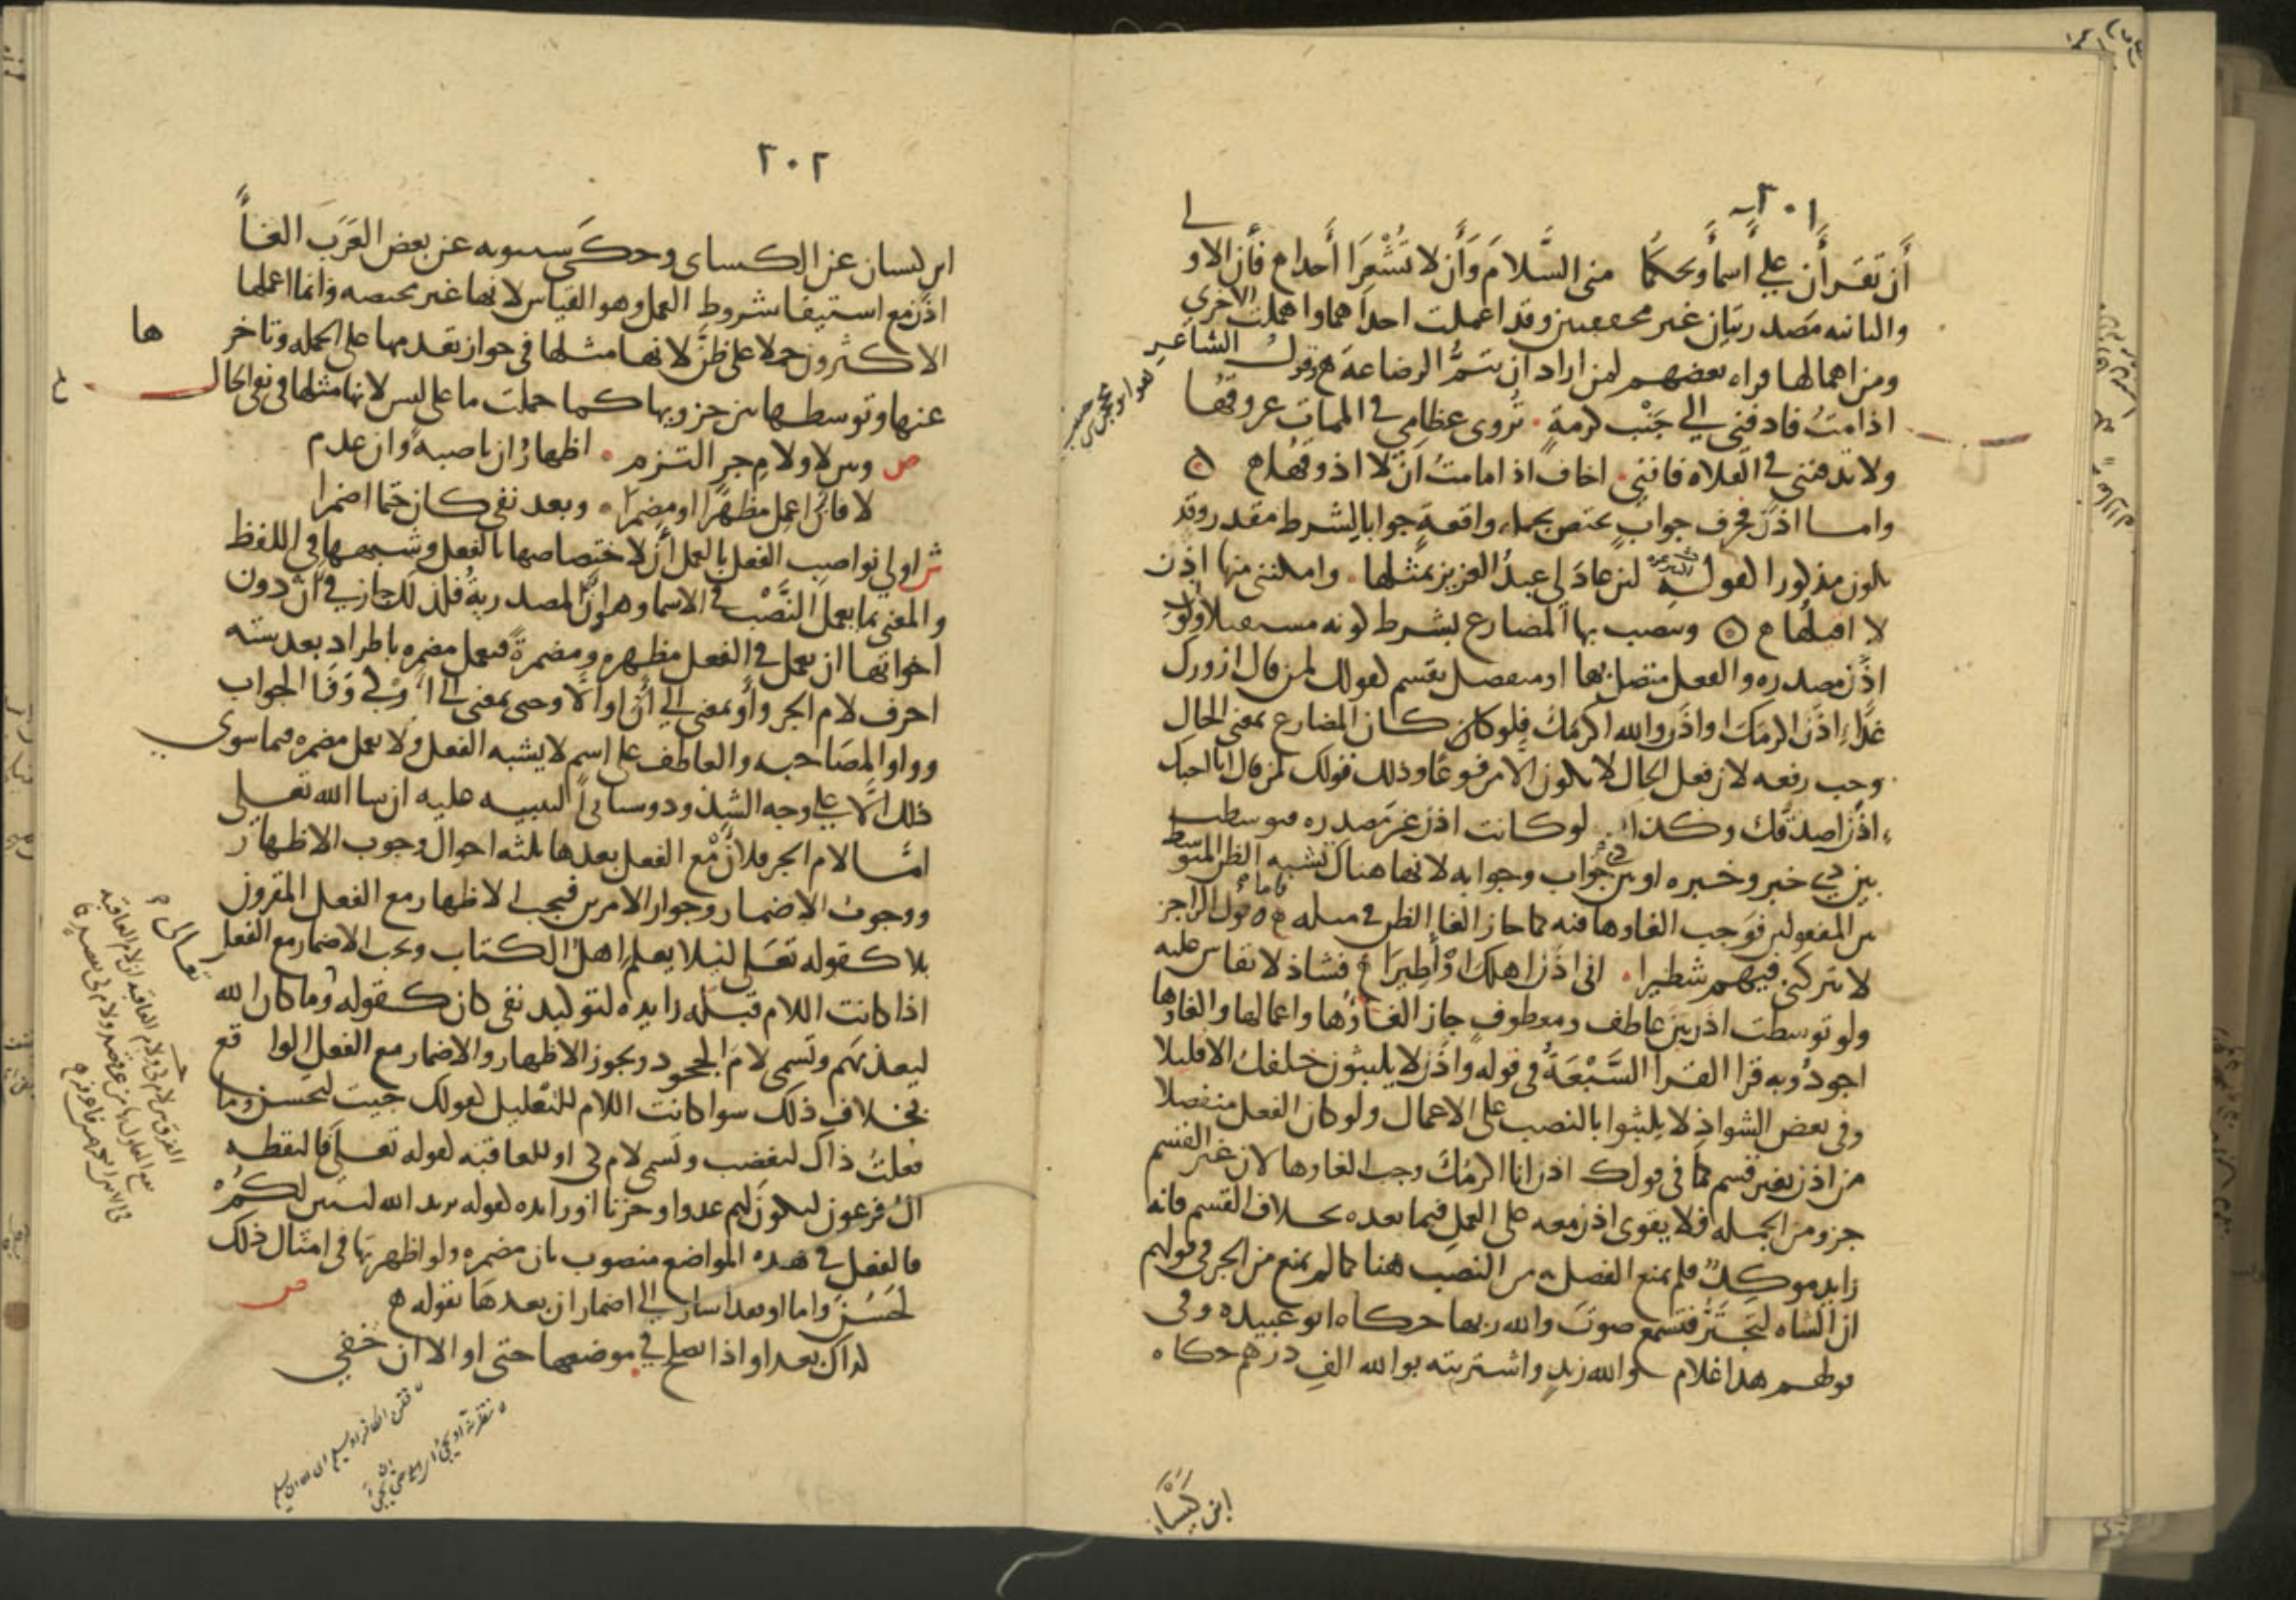 ٢٠١
أَن تَقرأَان علي أَسماَ ويحكُمَا منى السَّلامَ وَأَن لا تُشْعِرَا أَحدا ه فأن الاولي
والثانيه مصدريتان غير مخففتين وقد اعملت احداهما واهملت الاخري
ومن اهمالها قراه بعضهم لمن اراد ان يتمُّ الرضاعة ه وقول الشاعر
اذا مت فادفني الي جَنْب كرمةٍ تُروي عظامي في الممات عروقُها
ولا تدفنني في الفلاه فانني اخاف اذا ما متُ ان لا اذوقُها ه
واما اذن فحرف جواب يختص بجمله واقعةٍ جوابا لشرط مقدر وقد
يكون مذكورا كقوله لئن عادَ لي عبدُ العزيز بمثلها وامكنني منها اذن
لا اقيلُها ه وينصب بها المضارع بشرط كونه مستقبلا وكون
اذن مصدره والفعل متصل بها او منفصل بقسم كقولك لمن قال ازورك
غدًا اذن اكرمَكَ او اذن والله اكرمَك فلو كان المضارع بمعنى الحال
وجب رفعه لان فعل الحال لا يكون الا مرفوعًا وذلك قولك لمن قال انا احبك
اذن اصدقُك وكذا لو كانت اذن غير مصدره فتوسطت
بين ذي خبر وخبره او بين ذي جواب وجوابه لانها هناك تشبه الظن المتوسط
بين المفعولين فوجب الغاوها فيه كما جاز الغا الظن في مثله ه فاما قول الراجز
لا تتركنى فيهم شطيرا انى اذن اهلكَ اوْ أَطِيرَا ه فشاذ لا يقاس عليه
ولو توسطت اذن بين عاطف ومعطوف جاز الغاؤُها واعمالها والغاوها
اجودُ وبه قرا القرا السَّبْعَةُ في قوله واذن لا يلبثون خلفك الا قليلا
وفى بعض الشواذ لا يلبثوا بالنصب على الاعمال ولو كان الفعل منفصلا
من اذن بغير قسم كما في قولك اذن انا اكرمُكَ وجب الغاوها لان غير القسم
جزو من الجمله فلا يقوى اذن معه على العمل فيما بعده بخلاف القسم فانه
زايد موكد فلم يمنع الفصل به من النصب هنا كما لم يمنع من الجر في قولهم
ان الشاه لتجترُّ فتسمع صوتَ والله ربها حكاه ابو عبيده وفى
قولهم هذا غلام والله زيدٍ واشتريته بوالله الفِ درهم حكاه
ابن كَيْسَان
٢٠٢
ابن كيسان عن الكساى وحكَى سيبويه عن بعض العَرَب الغاً
اذن مع استيفا شروط العمل وهو القياس لانها غير مختصه وانما اعملها
الاكثرون حملا على ظنَّ لانها مثلها في جواز تقدمها على الجمله وتاخرها
عنها وتوسطها بين جزويها كما حملت ما على ليس لانها مثلها في نفى الحال
ص وبين لا ولامِ جر التزم اظهارُ ان ناصبةً وان عدم
لا فان اعمِل مظهرًا او مضمرا وبعد نفى كان حتما اضمرا
ش اولي نواصب الفعل بالعمل أَن لاختصاصها بالفعل وشبهها في اللفظ
والمعنى بما يعمل النَّصْبَ في الاسما وهو أنَّ المصدريةُ فلذلك جاز في أن دون
اخواتها ان يعمل في الفعل مظهره ومضمرةً فيعمل مضمره باطراد بعد سته
احرف لام الجر وأَو بمعنى الي أَن او الا وحتى بمعنى الي او كي وَفَا الجواب
وواو المصَاحبه والعاطف على اسم لا يشبه الفعل ولا يعمل مضمره فيما سوى
ذلك الا علي وجه الشذوذ وسياتي التنبيه عليه ان شا الله تعلي
امَّا لام الجر فلأن مع الفعل بعدها ثلثه احوال وجوب الاظهار
ووجوبُ الاضمار وجواز الامرين فيجب الاظهار مع الفعل المقرون
بلا كقوله تعلى لئيلا يعلم اهل الكتاب ويجب الاضمار مع الفعل
اذا كانت اللام قبله زايده لتوكيد نفى كان كقوله وما كان الله
ليعذبَهم وتسمى لامَ الجحود ويجوز الاظهار والاضمار مع الفعل الواقع
بخلاف ذلك سوا كانت اللام للتعليل كقولك جيت لتحسن وما
فعلتُ ذاك لتغضب وتسمى لام كى او للعاقبه كقوله تعلى فالتقطه
الُ فرعون ليكونَ لهم عدوا وحزنا او زايده كقوله يريد الله ليبين لكم
فالفعل في هذه المواضع منصوب بان مضمره ولو اظهرتها في امثال ذلك
لحَسُنَ واما او بعد اشار الي اضمار ان بعدها بقوله ه ص
كذاك بعد او اذا يصلح في موضعها حتى او الا ان خفي